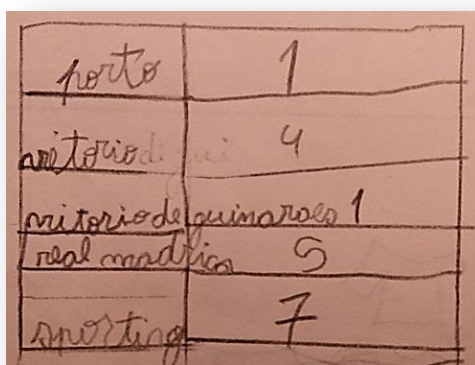 porto 1
vitorio de gui 4
vitorio de guimarães 1
real madrid 5
sporting 7